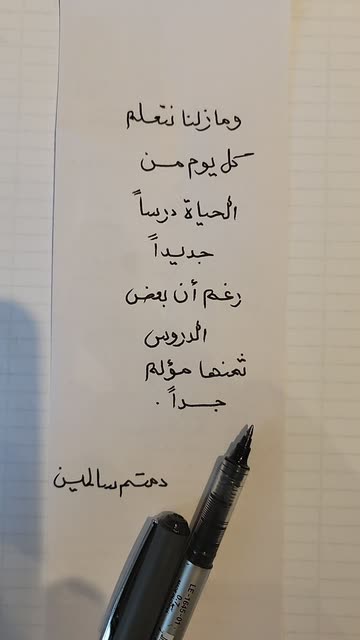 ومازلنا نتعلم
كل يوم من
الحياة درساً
جديداً
رغم أن بعض
الدروس
ثمنها مؤلم
جداً.
دمتم سالمين
LE-1645-01
0.7